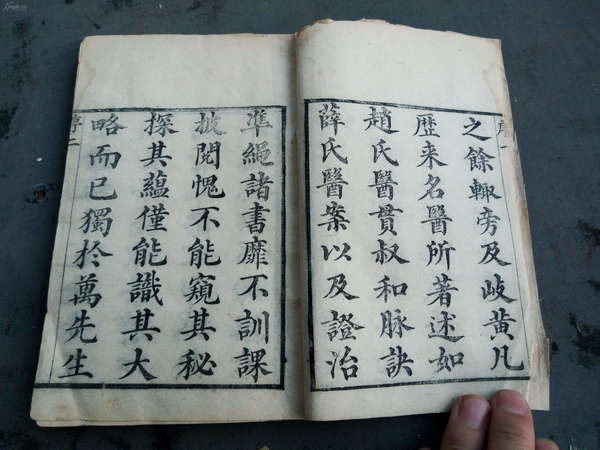 之餘輙旁及岐黄凡
歴来名醫所著述如
趙氏醫貫叔和脉訣
薛氏醫案以及證治
準繩諸書靡不訓課
披閲愧不能窺其秘
探其蘊僅能識其大
略而已獨於萬先生
序二